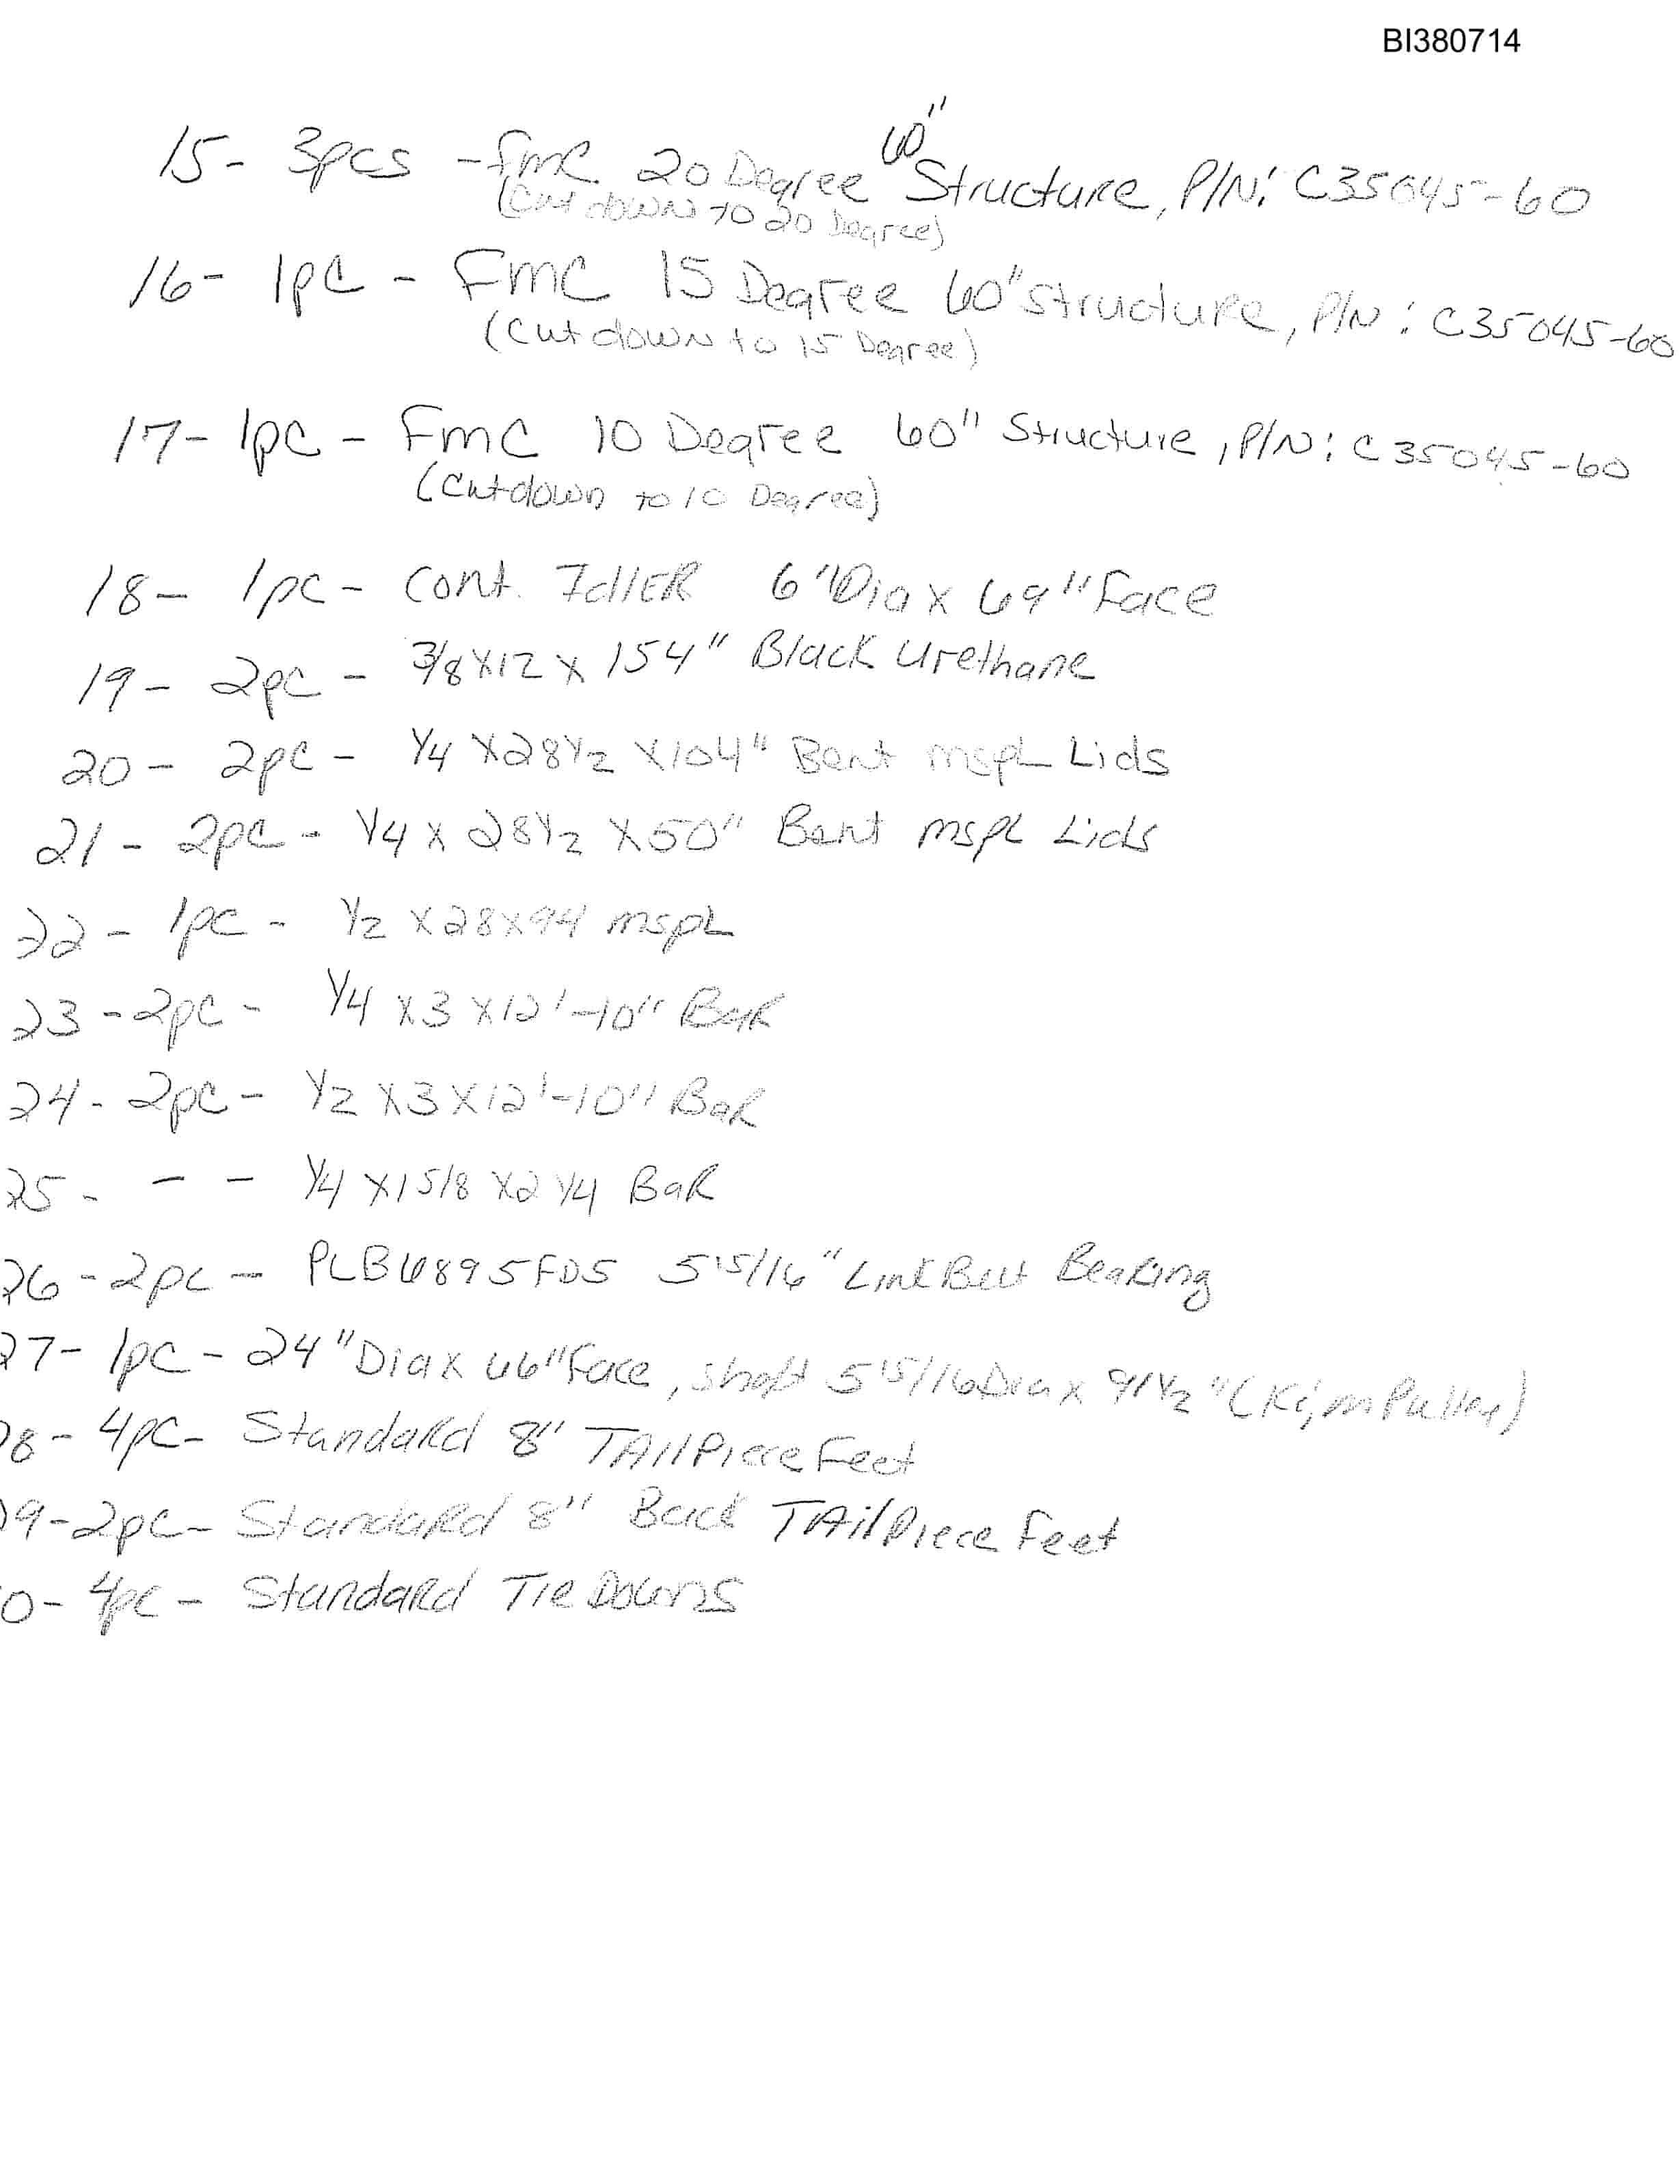 BI380714
15- 3pcs - FMC 20 Degree 60" Structure, P/N: C35045-60
(Cut down to 20 Degree)
16- 1pc - FMC 15 Degree 60" Structure, P/N: C35045-60
(Cut down to 15 Degree)
17- 1pc - FMC 10 Degree 60" Structure, P/N: C35045-60
(Cut down to 10 Degree)
18- 1pc - Cont. IdlER 6" Dia x 69" Face
19- 2pc - 3/8 x 12 x 154" Black Urethane
20- 2pc - 1/4 x 28 1/2 x 104" Bent mspl Lids
21- 2pc - 1/4 x 28 1/2 x 50" Bent mspl Lids
22- 1pc - 1/2 x 28 x 94 mspl
23- 2pc - 1/4 x 3 x 12'-10" BaR
24- 2pc - 1/2 x 3 x 12'-10" BaR
25- - - 1/4 x 1 5/8 x 2 1/4 BaR
26- 2pc - PLB6895FD5 5 15/16" Link Belt Bearing
27- 1pc - 24" Dia x 66" Face, shaft 5 15/16 Dia x 91 1/2" (Pulley)
28- 4pc - Standard 8" TAilPiece Feet
9- 2pc - Standard 8" Back TAilPiece Feet
0- 4pc - Standard Tie Downs